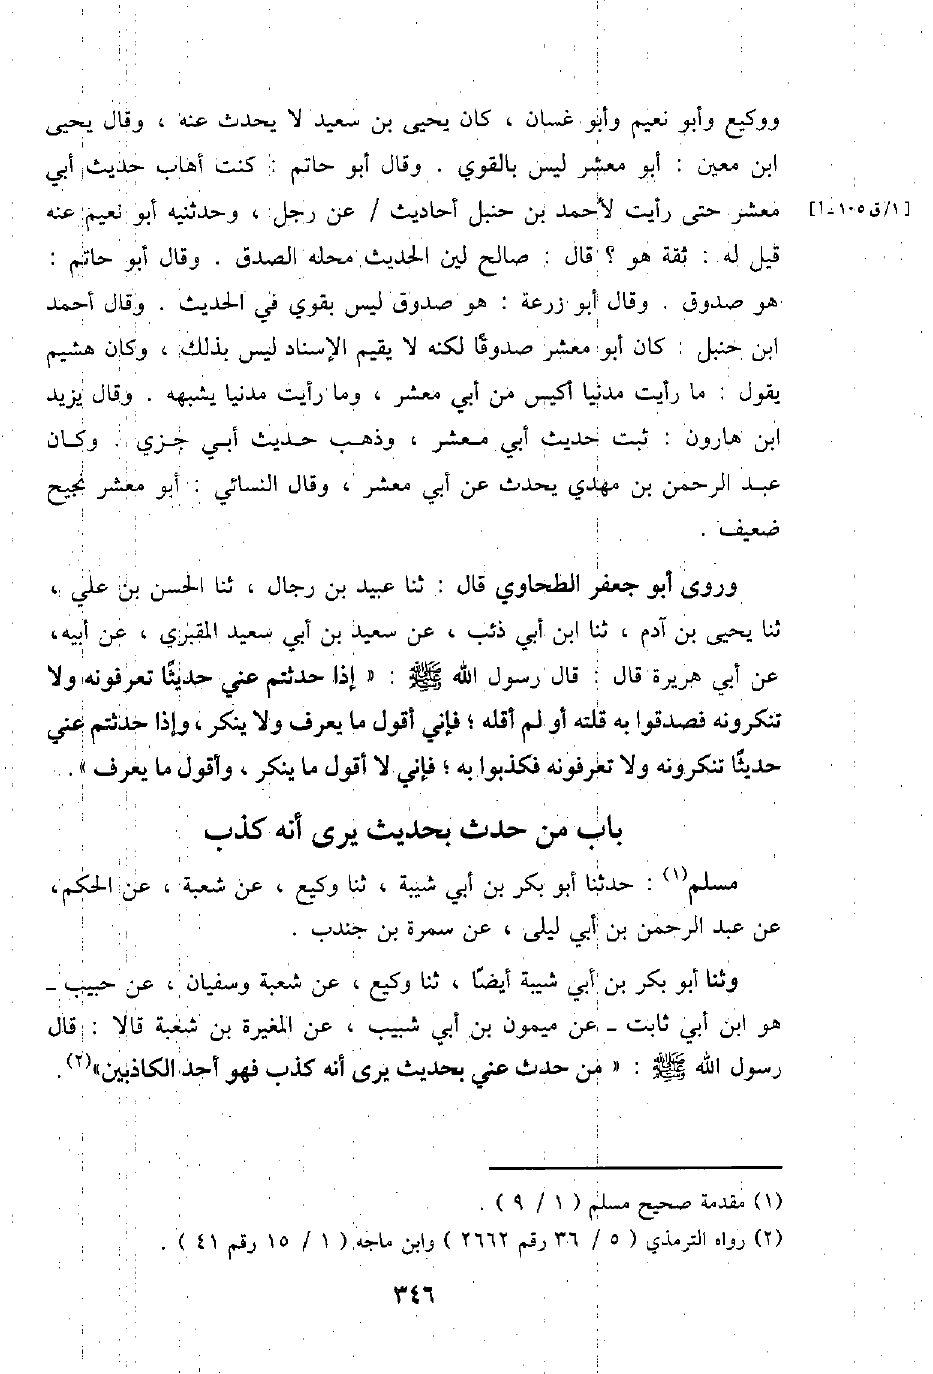 ووكيع وأبو نعيم وأبو غسان ، كان يحيى بن سعيد لا يحدث عنه ، وقال يحيى
ابن معين : أبو معشر ليس بالقوي . وقال أبو حاتم : كنت أهاب حديث أبي
معشر حتى رأيت لأحمد بن حنبل أحاديث / عن رجل ، وحدثنيه أبو نعيم عنه
[١/ق١٠٥-أ]
قيل له : ثقة هو ؟ قال : صالح لين الحديث محله الصدق . وقال أبو حاتم :
هو صدوق . وقال أبو زرعة : هو صدوق ليس بقوي في الحديث . وقال أحمد
ابن حنبل : كان أبو معشر صدوقًا لكنه لا يقيم الإسناد ليس بذلك ، وكان هشيم
يقول : ما رأيت مدنيا أكيس من أبي معشر ، وما رأيت مدنيا يشبهه . وقال يزيد
ابن هارون : ثبت حديث أبي معشر ، وذهب حديث أبي جزي . وكان
عبد الرحمن بن مهدي يحدث عن أبي معشر ، وقال النسائي : أبو معشر نجيح
ضعيف .
وروى أبو جعفر الطحاوي قال : ثنا عبيد بن رجال ، ثنا الحسن بن علي ،
ثنا يحيى بن آدم ، ثنا ابن أبي ذئب ، عن سعيد بن أبي سعيد المقبري ، عن أبيه،
عن أبي هريرة قال : قال رسول الله ﷺ : « إذا حدثتم عني حديثًا تعرفونه ولا
تنكرونه فصدقوا به قلته أو لم أقله ؛ فإني أقول ما يعرف ولا ينكر ، وإذا حدثتم عني
حديثًا تنكرونه ولا تعرفونه فكذبوا به ؛ فإني لا أقول ما ينكر ، وأقول ما يعرف » .
باب من حدث بحديث يرى أنه كذب
مسلم(١) : حدثنا أبو بكر بن أبي شيبة ، ثنا وكيع ، عن شعبة ، عن الحكم،
عن عبد الرحمن بن أبي ليلى ، عن سمرة بن جندب .
وثنا أبو بكر بن أبي شيبة أيضًا ، ثنا وكيع ، عن شعبة وسفيان ، عن حبيب ـ
هو ابن أبي ثابت ـ عن ميمون بن أبي شبيب ، عن المغيرة بن شعبة قالا : قال
رسول الله ﷺ : « من حدث عني بحديث يرى أنه كذب فهو أحد الكاذبين»(٢).
(١) مقدمة صحيح مسلم ( ١ / ٩ ) .
(٢) رواه الترمذي ( ٥ / ٣٦ رقم ٢٦٦٢ ) وابن ماجه ( ١ / ١٥ رقم ٤١ ) .
٣٤٦